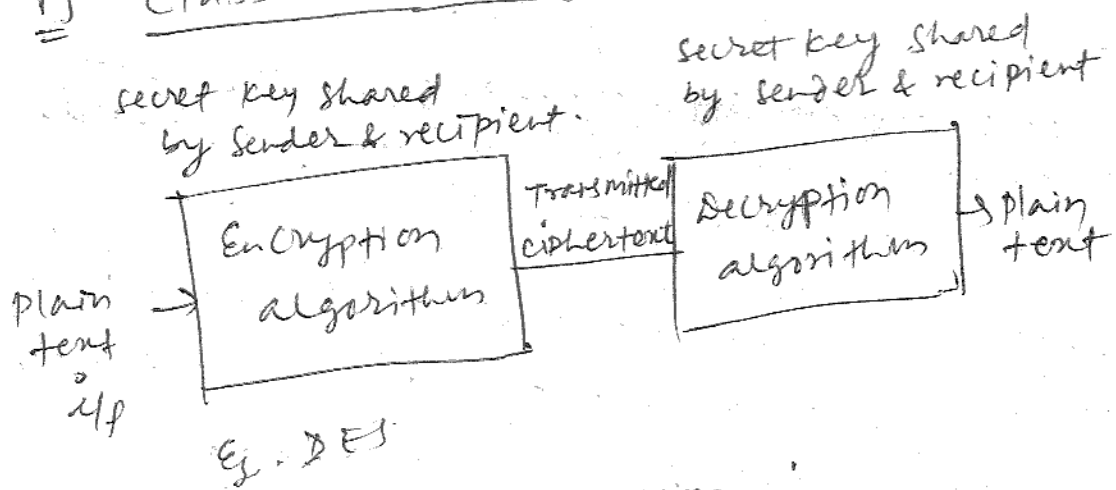 secret key shared
by sender & recipient.
secret key shared
by sender & recipient
Plain
text
i/p
Encryption
algorithm
Transmitted
ciphertext
Decryption
algorithm
plain
text
Eg. DES